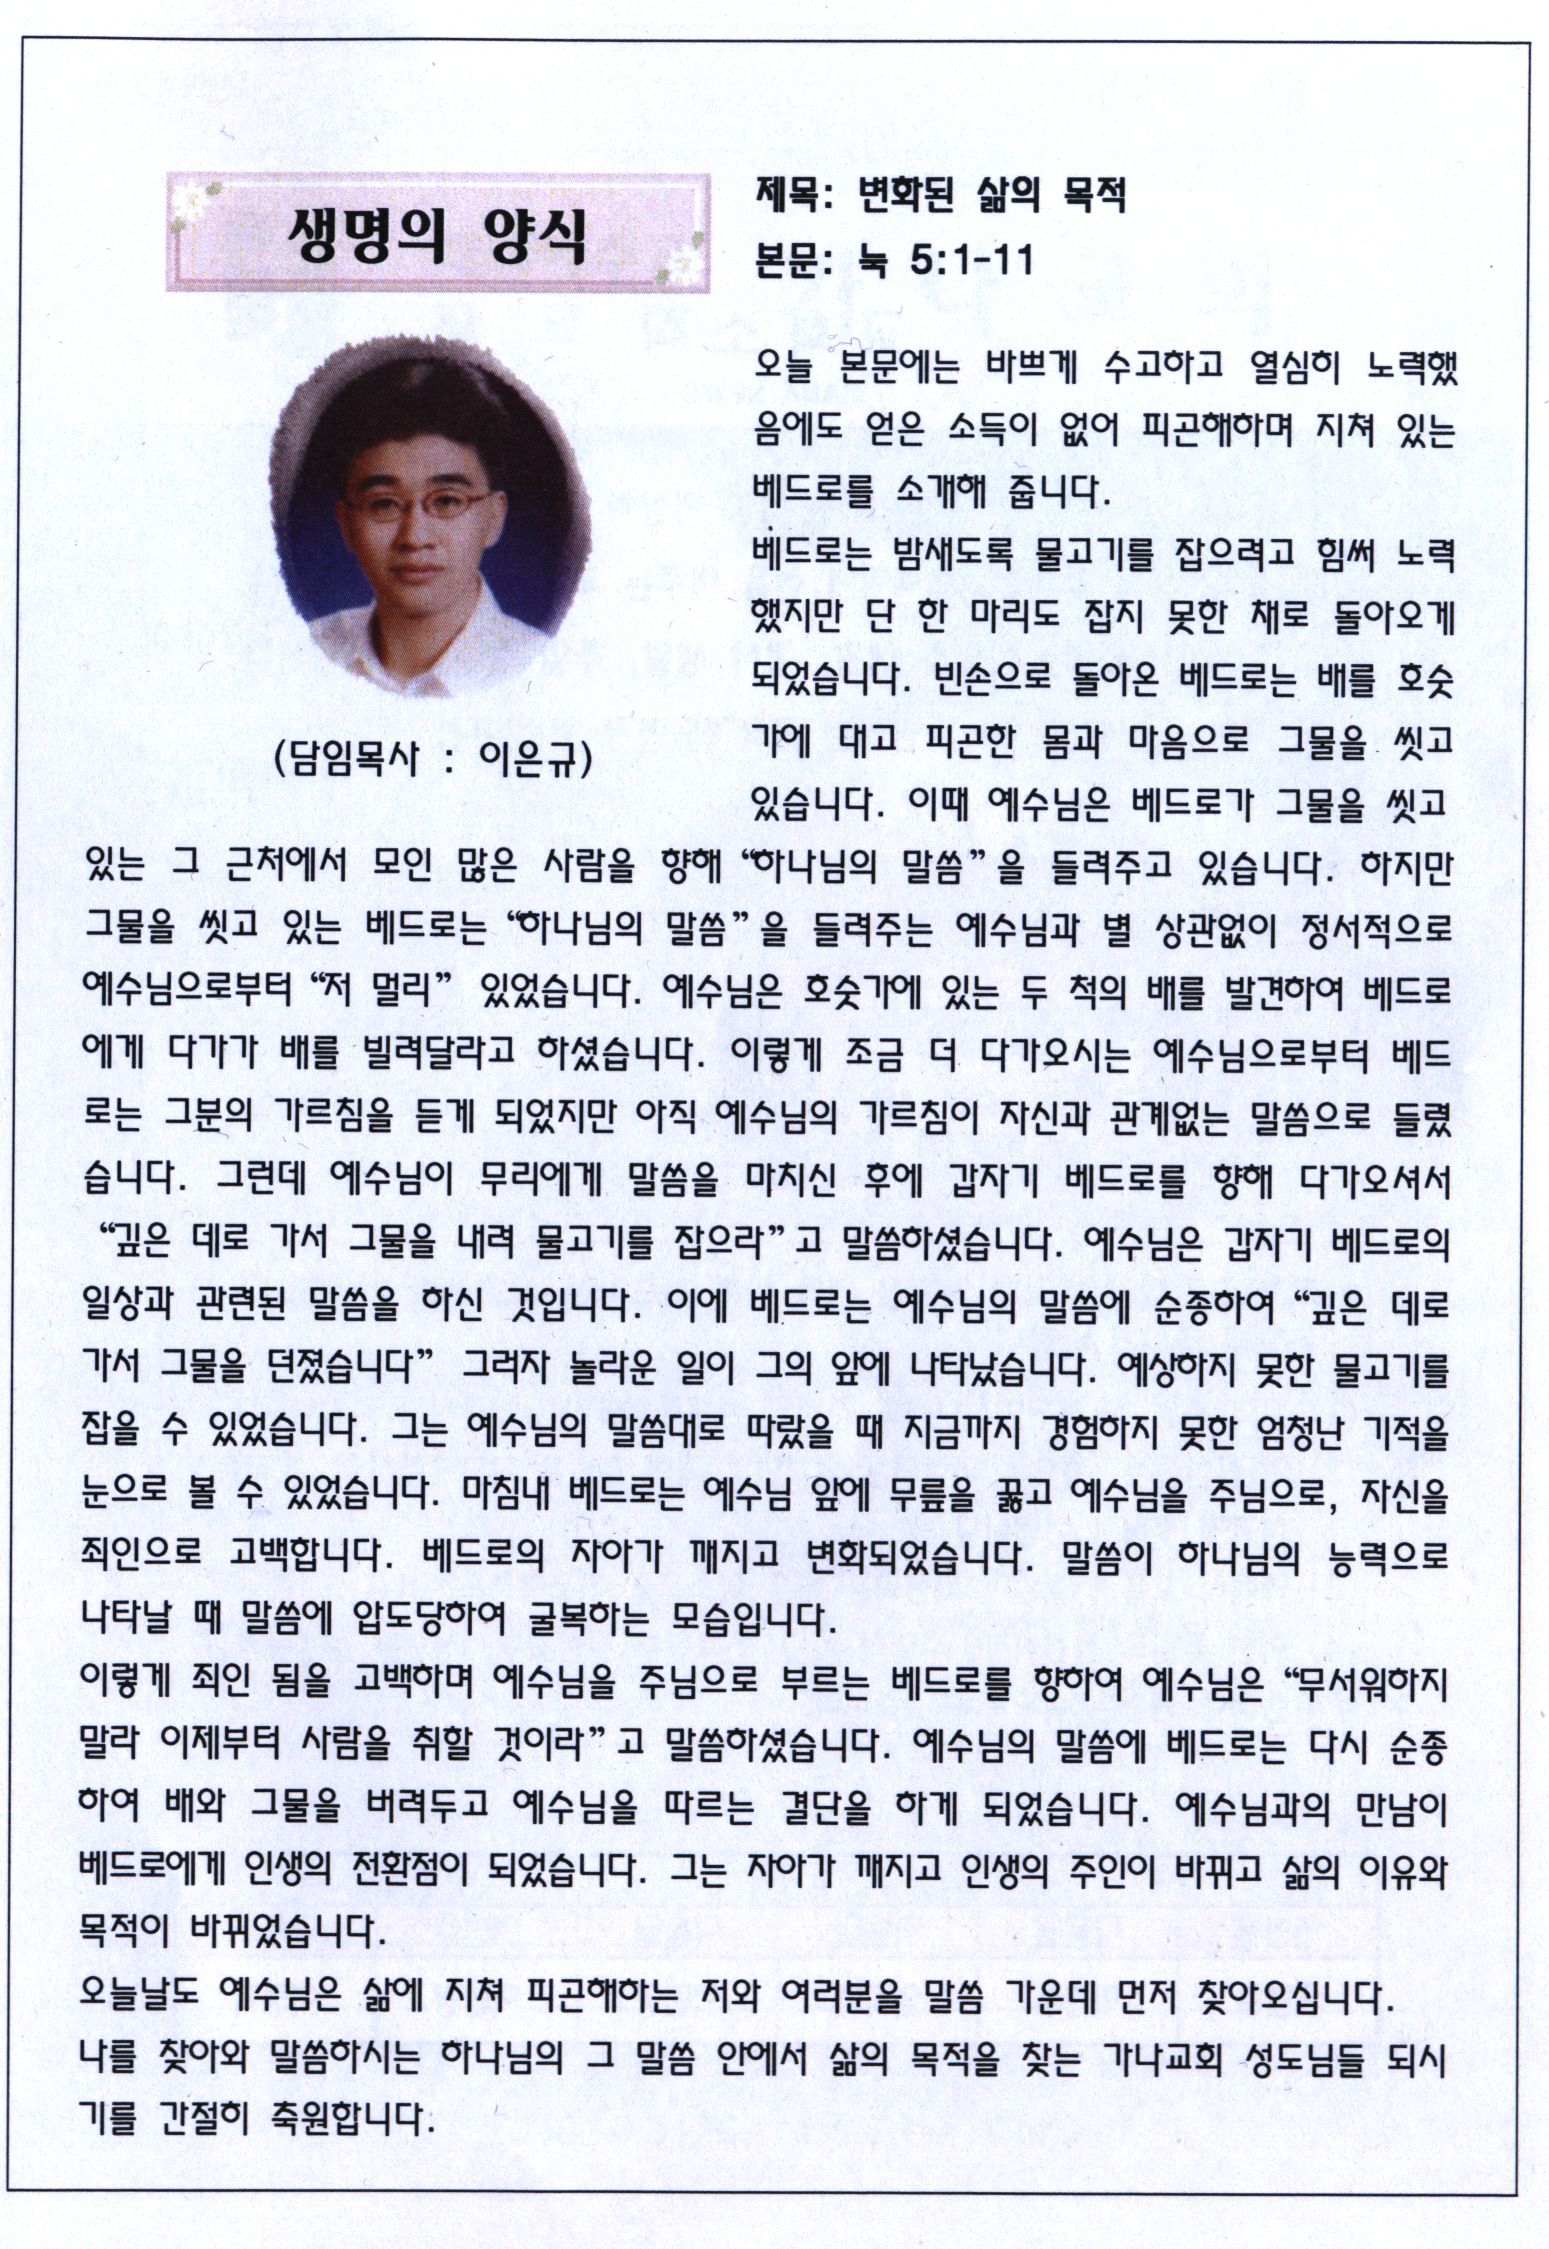 생명의 양식
제목: 변화된 삶의 목적
본문: 눅 5:1-11
(담임목사 : 이은규)
오늘 본문에는 바쁘게 수고하고 열심히 노력했
음에도 얻은 소득이 없어 피곤해하며 지쳐 있는
베드로를 소개해 줍니다.
베드로는 밤새도록 물고기를 잡으려고 힘써 노력
했지만 단 한 마리도 잡지 못한 채로 돌아오게
되었습니다. 빈손으로 돌아온 베드로는 배를 호숫
가에 대고 피곤한 몸과 마음으로 그물을 씻고
있습니다. 이때 예수님은 베드로가 그물을 씻고
있는 그 근처에서 모인 많은 사람을 향해 “하나님의 말씀”을 들려주고 있습니다. 하지만
그물을 씻고 있는 베드로는 “하나님의 말씀”을 들려주는 예수님과 별 상관없이 정서적으로
예수님으로부터 “저 멀리” 있었습니다. 예수님은 호숫가에 있는 두 척의 배를 발견하여 베드로
에게 다가가 배를 빌려달라고 하셨습니다. 이렇게 조금 더 다가오시는 예수님으로부터 베드
로는 그분의 가르침을 듣게 되었지만 아직 예수님의 가르침이 자신과 관계없는 말씀으로 들렸
습니다. 그런데 예수님이 무리에게 말씀을 마치신 후에 갑자기 베드로를 향해 다가오셔서
“깊은 데로 가서 그물을 내려 물고기를 잡으라”고 말씀하셨습니다. 예수님은 갑자기 베드로의
일상과 관련된 말씀을 하신 것입니다. 이에 베드로는 예수님의 말씀에 순종하여 “깊은 데로
가서 그물을 던졌습니다” 그러자 놀라운 일이 그의 앞에 나타났습니다. 예상하지 못한 물고기를
잡을 수 있었습니다. 그는 예수님의 말씀대로 따랐을 때 지금까지 경험하지 못한 엄청난 기적을
눈으로 볼 수 있었습니다. 마침내 베드로는 예수님 앞에 무릎을 꿇고 예수님을 주님으로, 자신을
죄인으로 고백합니다. 베드로의 자아가 깨지고 변화되었습니다. 말씀이 하나님의 능력으로
나타날 때 말씀에 압도당하여 굴복하는 모습입니다.
이렇게 죄인 됨을 고백하며 예수님을 주님으로 부르는 베드로를 향하여 예수님은 “무서워하지
말라 이제부터 사람을 취할 것이라”고 말씀하셨습니다. 예수님의 말씀에 베드로는 다시 순종
하여 배와 그물을 버려두고 예수님을 따르는 결단을 하게 되었습니다. 예수님과의 만남이
베드로에게 인생의 전환점이 되었습니다. 그는 자아가 깨지고 인생의 주인이 바뀌고 삶의 이유와
목적이 바뀌었습니다.
오늘날도 예수님은 삶에 지쳐 피곤해하는 저와 여러분을 말씀 가운데 먼저 찾아오십니다.
나를 찾아와 말씀하시는 하나님의 그 말씀 안에서 삶의 목적을 찾는 가나교회 성도님들 되시
기를 간절히 축원합니다.